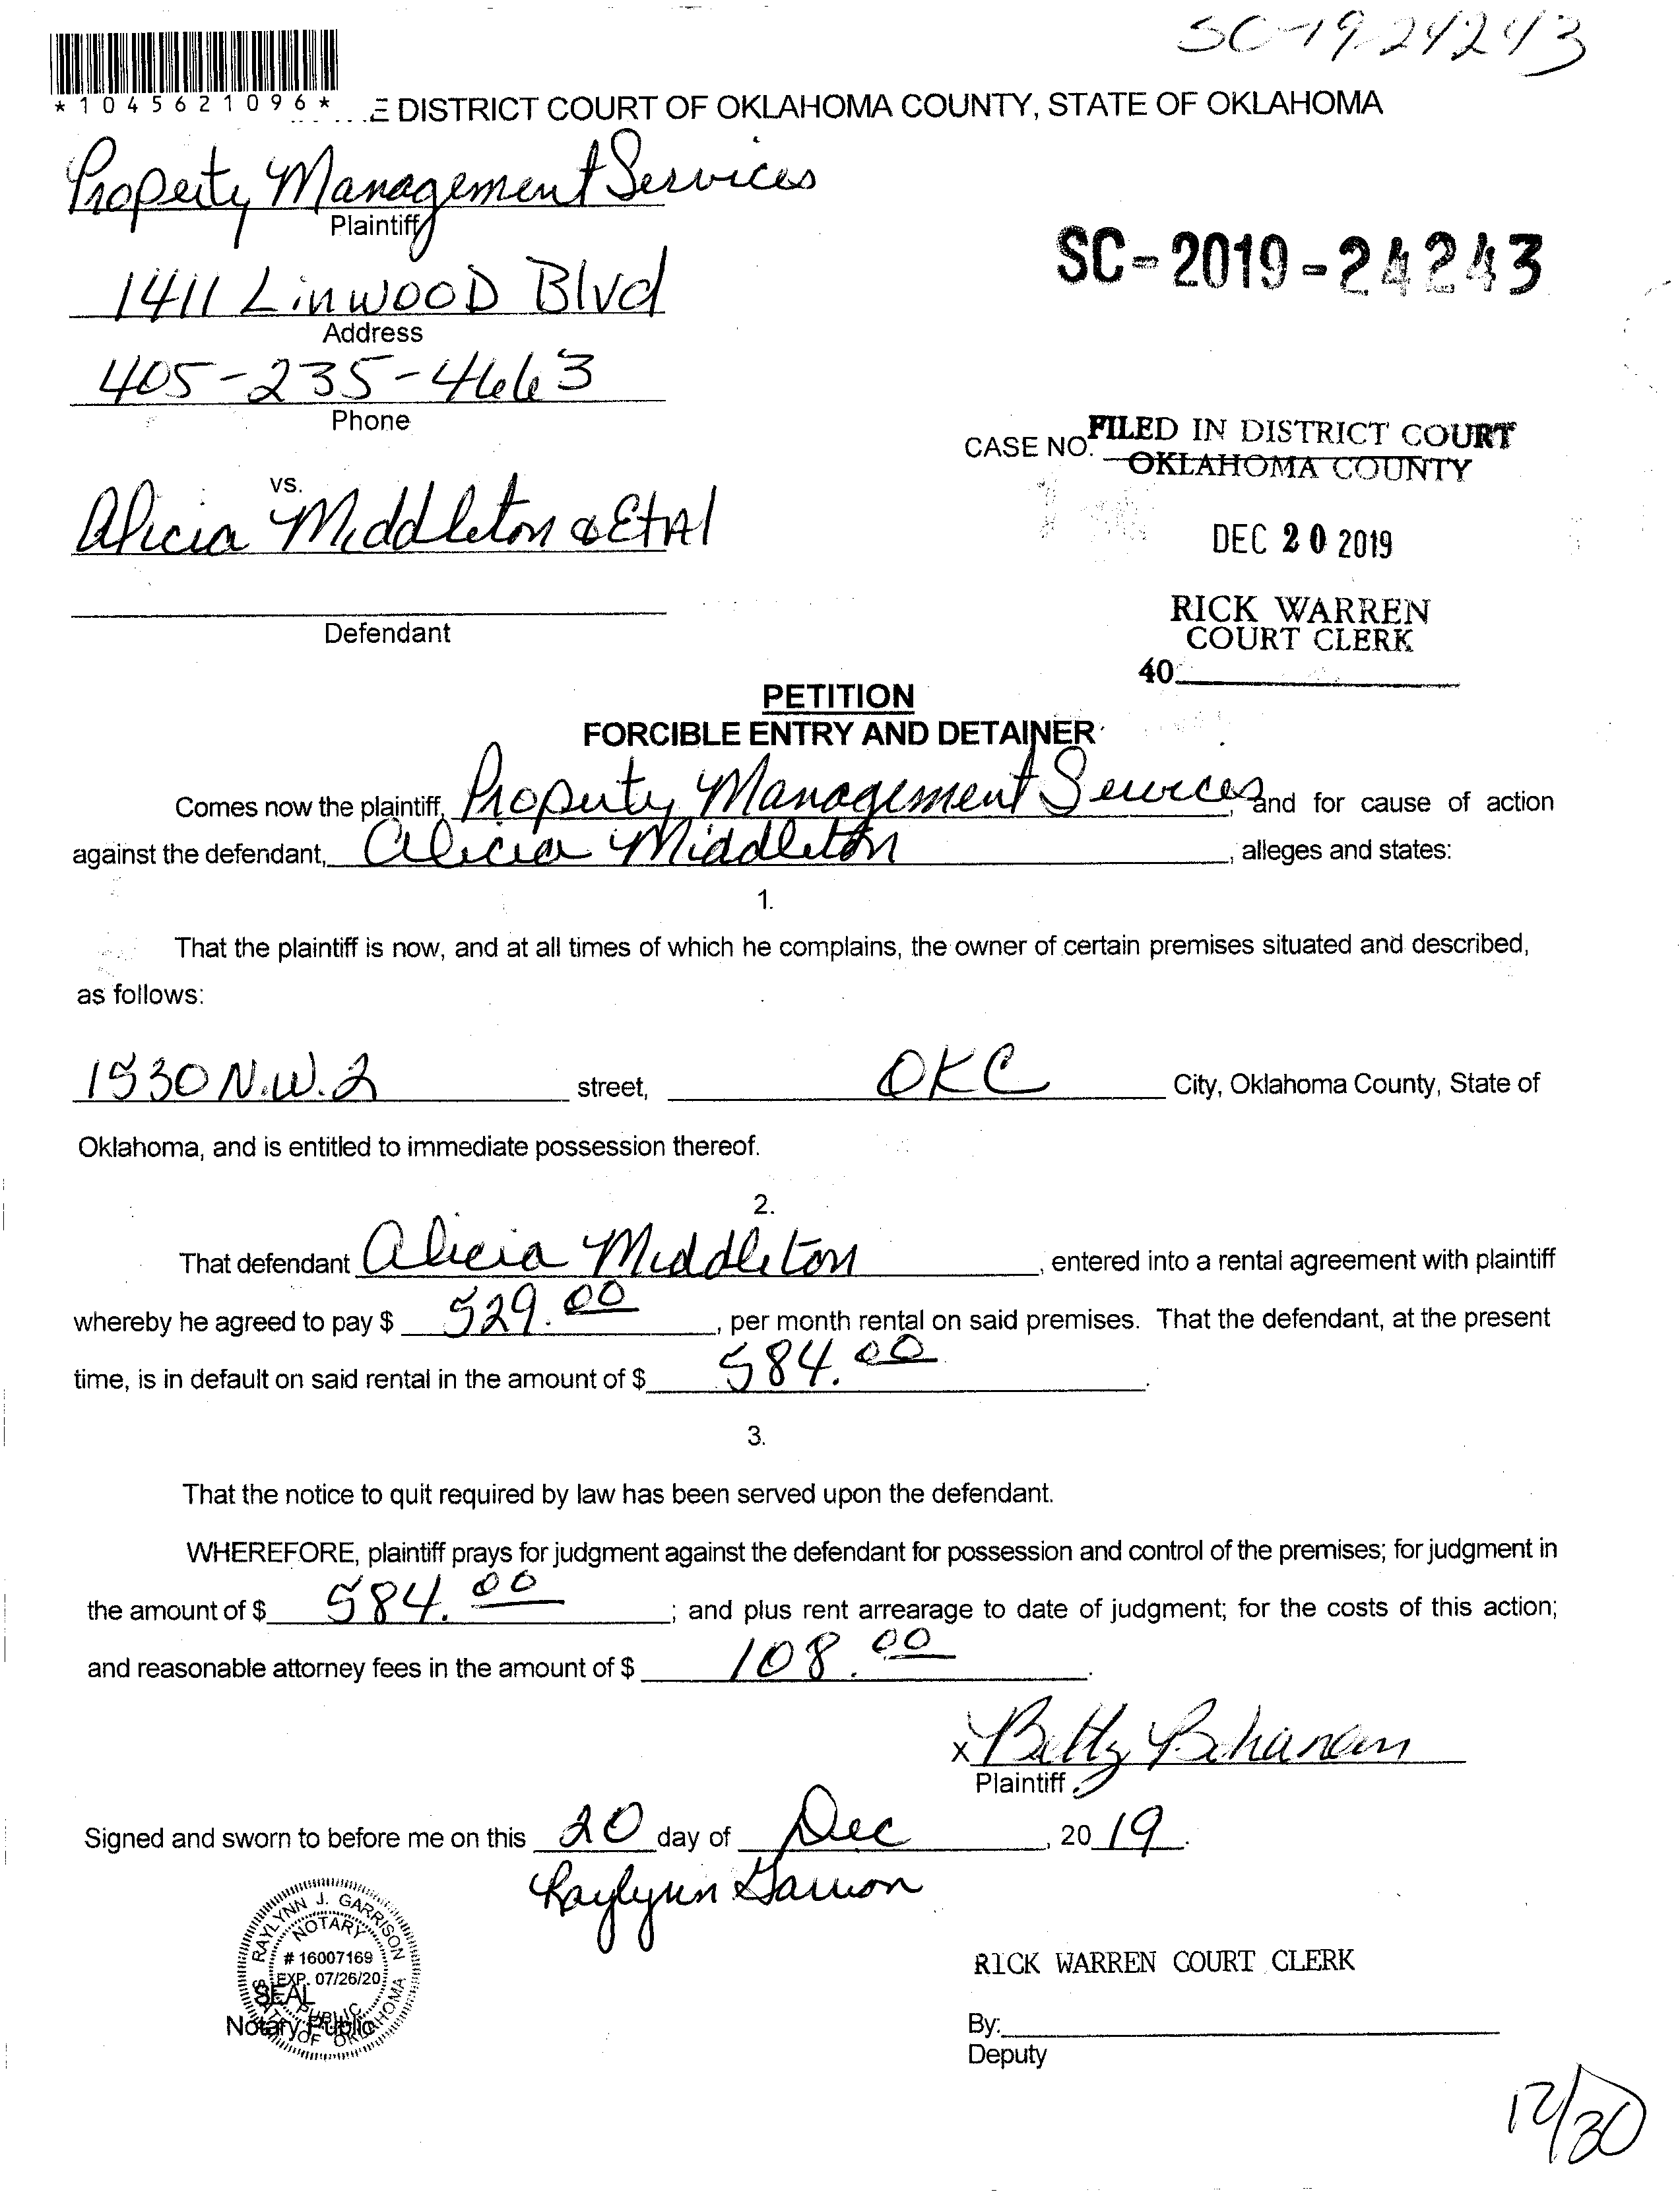 SC-19-24243
*1045621096*
E DISTRICT COURT OF OKLAHOMA COUNTY, STATE OF OKLAHOMA
Property Management Services
Plaintiff
1411 LinwooD Blvd
Address
SC-2019-24243
405-235-4663
Phone
CASE NO.
FILED IN DISTRICT COURT
OKLAHOMA COUNTY
vs.
Alicia Middleton & EtAl
DEC 20 2019
RICK WARREN
COURT CLERK
Defendant
40
PETITION
FORCIBLE ENTRY AND DETAINER
Comes now the plaintiff, Property Management Services, and for cause of action
against the defendant, Alicia Middleton, alleges and states:
1.
That the plaintiff is now, and at all times of which he complains, the owner of certain premises situated and described,
as follows:
1530 N.W. 2 street, OKC City, Oklahoma County, State of
Oklahoma, and is entitled to immediate possession thereof.
2.
That defendant Alicia Middleton, entered into a rental agreement with plaintiff
whereby he agreed to pay $ 529.00, per month rental on said premises. That the defendant, at the present
time, is in default on said rental in the amount of $ 584.00.
3.
That the notice to quit required by law has been served upon the defendant.
WHEREFORE, plaintiff prays for judgment against the defendant for possession and control of the premises; for judgment in
the amount of $ 584.00; and plus rent arrearage to date of judgment; for the costs of this action;
and reasonable attorney fees in the amount of $ 108.00.
X Betty Bohanan
Plaintiff
Signed and sworn to before me on this 20 day of Dec, 2019.
Raylynn Garrison
RAYLYNN J. GARRISON
NOTARY
# 16007169
EXP. 07/26/20
PUBLIC
STATE OF OKLAHOMA
SEAL
Notary Public
RICK WARREN COURT CLERK
By:
Deputy
12/30